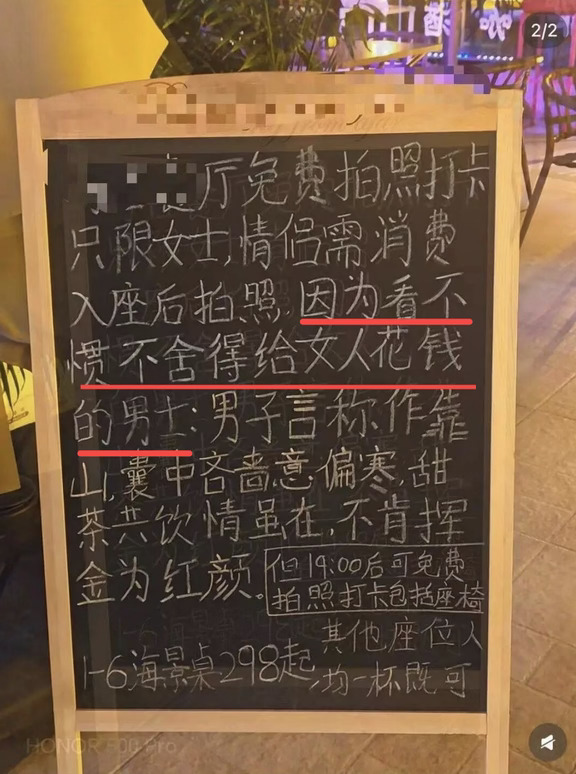 2/2
厅免费拍照打卡
只限女士,情侣需消费
入座后拍照因为看不
惯不舍得给女人花钱
的男士:男子言称作靠
山,囊中吝啬意偏寒,甜
茶共饮情虽在,不肯挥
金为红颜。
但19:00后可免费
拍照打卡包括座椅
其他座位人
1-6海景桌298起,均一杯既可
HONOR
Pro